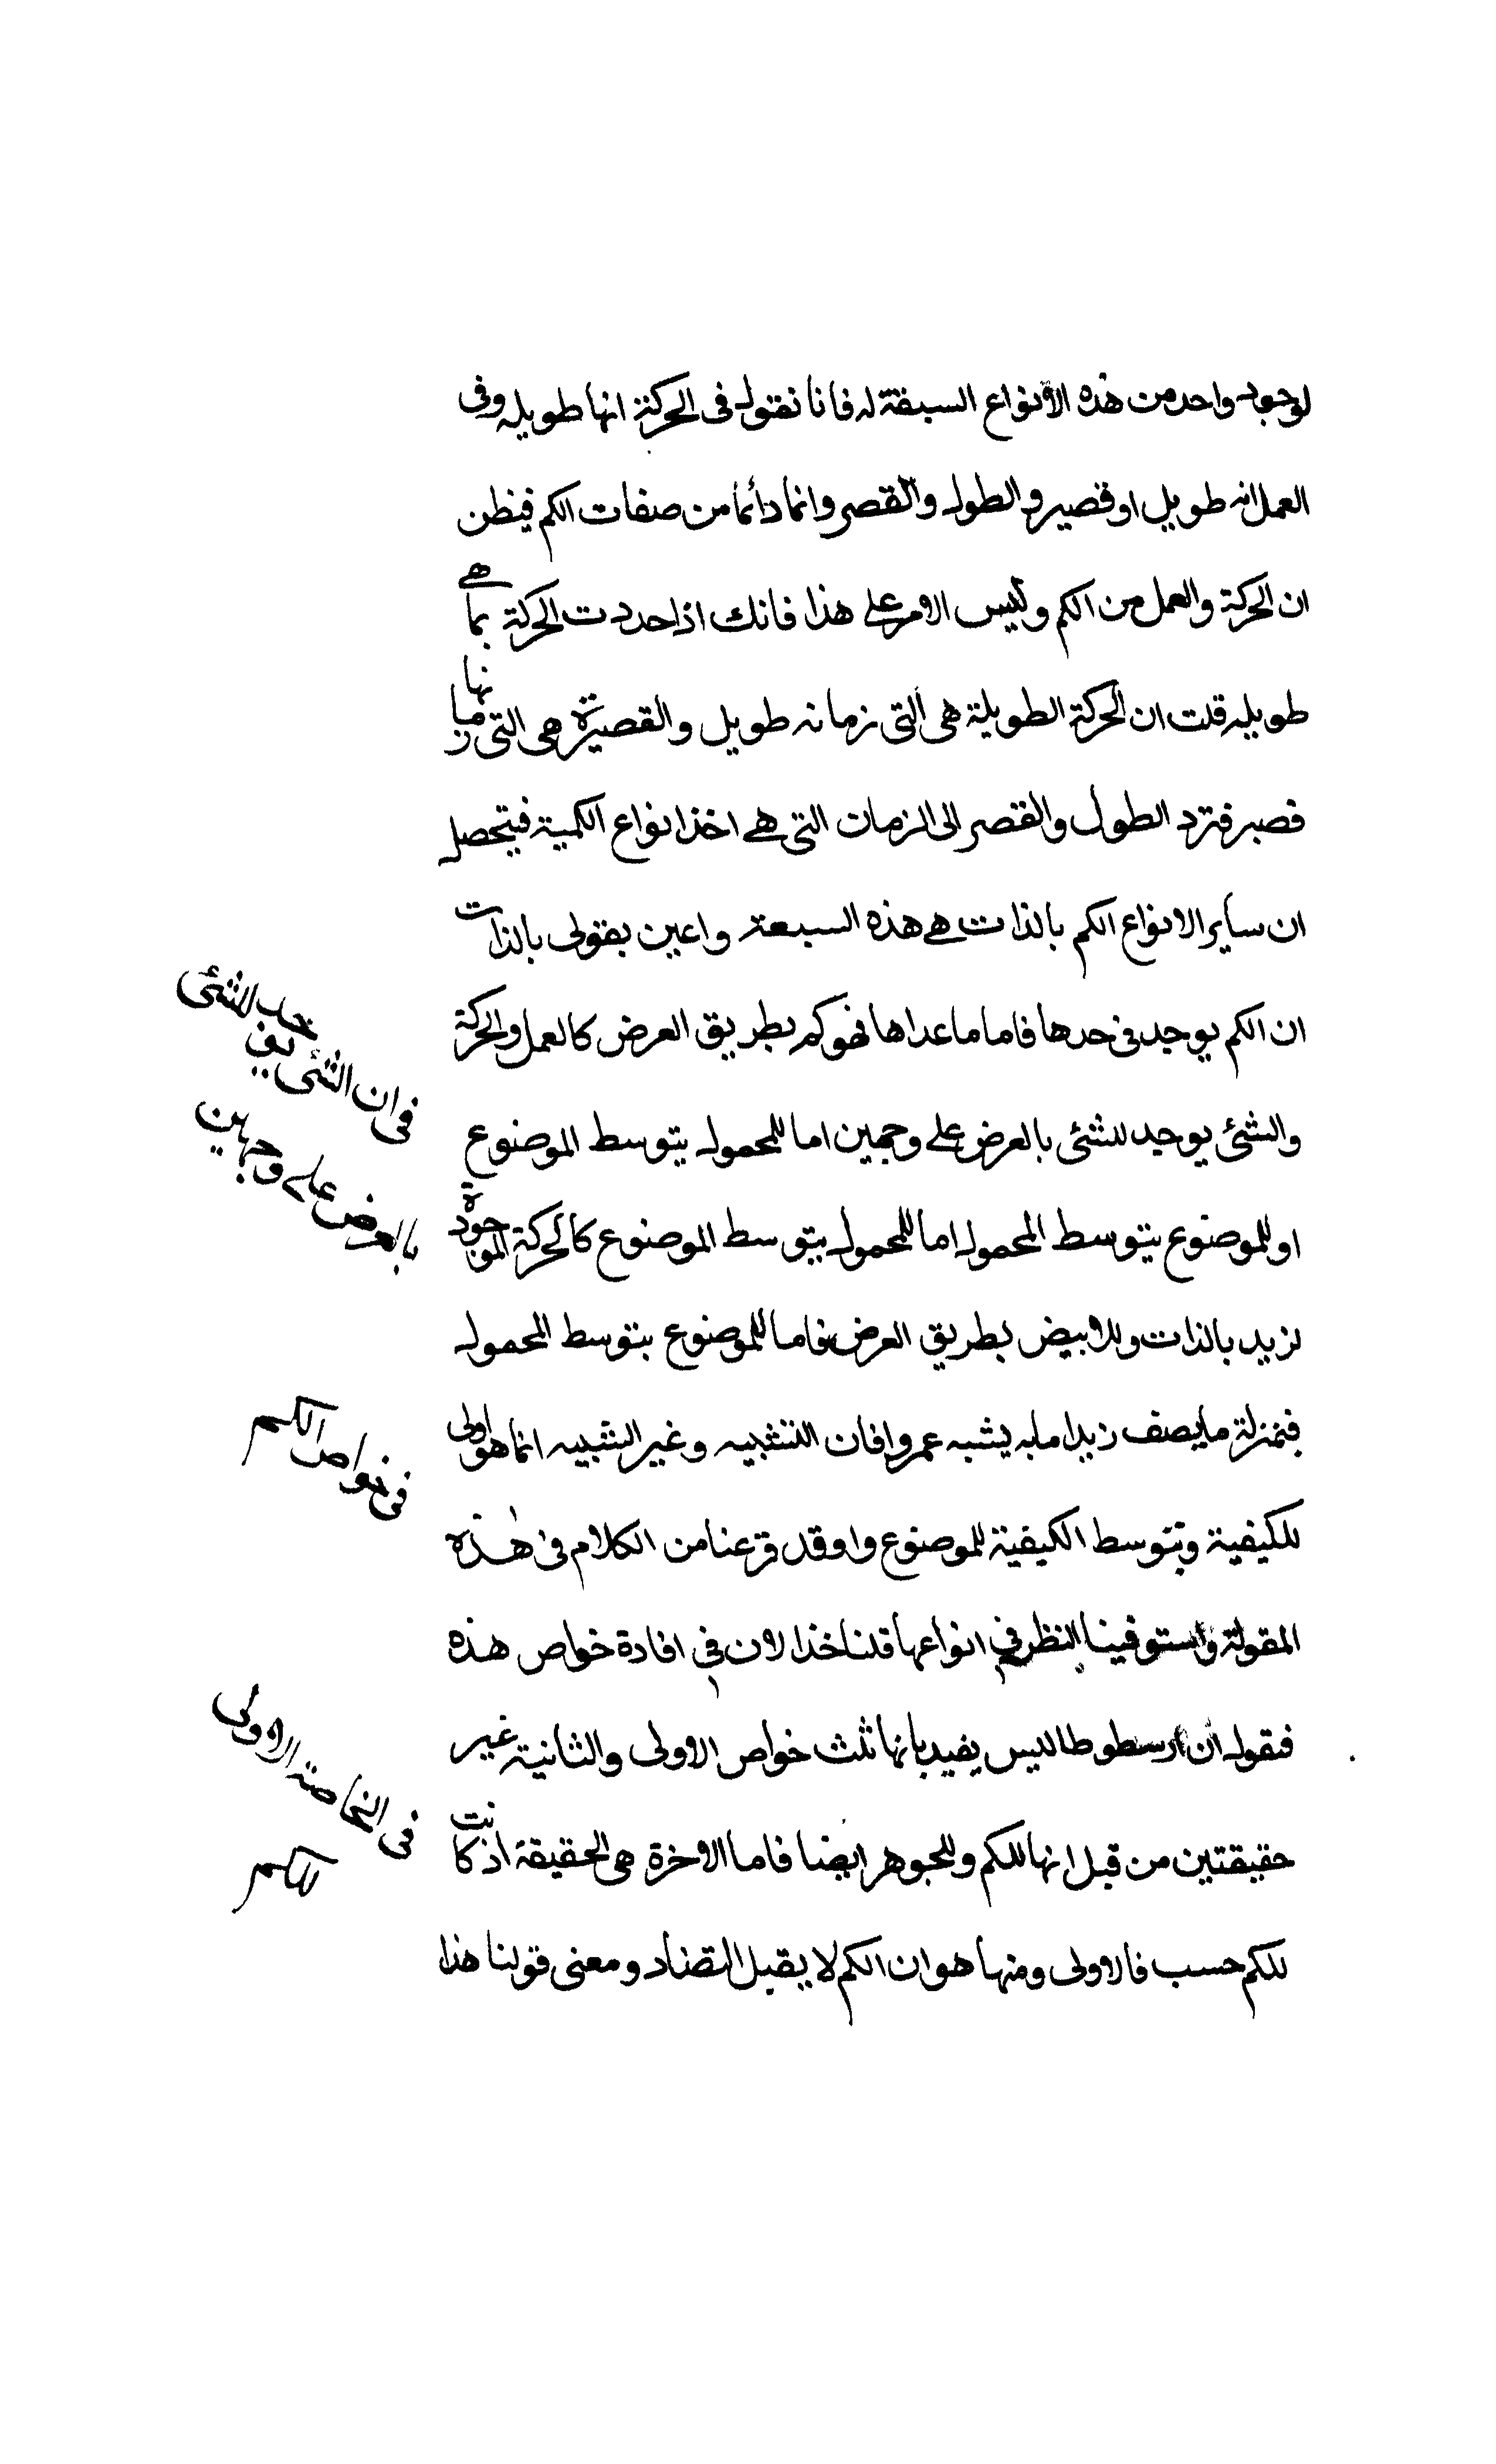 لوجود واحد من هذه الانواع السبقة له فانا نقول فى الحركة انها طويله وفى
العمل انه طويل او قصير والطول والقصر وانما دائما من صفات الكم فيظن
ان الحركة والعمل من الكم وليس الامر على هذا فانك اذا حددت الحركة بما هى
طويله قلت ان الحركة الطويلة هى التى زمانه طويل والقصيرة هى التى زمانها
قصير فترد الطول والقصر الى الزمان التى هى اخذ انواع الكمية فيتحصل
ان ساير الانواع الكم بالذات هى هذه السبعة واعين بقولى بالذات
ان الكم يوجد فى حدها فاما ما عداها فهو كم بطريق العرض كالعمل والحركة
والشئ يوجد للشئ بالعرض على وجهين اما للمحمول بتوسط الموضوع
او للموضوع بتوسط المحمول اما للمحمول بتوسط الموضوع كالحركة الموجودة
لزيد بالذات وللابيض بطريق العرض فاما للموضوع بتوسط المحمول
فبمنزلة ما يصف زيدا ما به يشبه عمروا فان التشبيه وغير الشبيه انما هو اولى
للكيفية وبتوسط الكيفية للموضوع واوقد فرغنا من الكلام فى هذه
المقولة واستوفينا النظر فى انواعها قلنا خذ الان فى افادة خواص هذه
فنقول ان ارسطوطاليس يفيد بانها ثلث خواص الاولى والثانية غير
حقيقتين من قبل انها للكم وللجوهر ايضا فاما الاخرة هى الحقيقة اذ كانت
للكم حسب فالاولى ومنها هو ان الكم لا يقبل التضاد ومعنى قولنا هذا
فى ان الشئ يوجد للشئ
بالعرض على وجهين
فى خواص الكم
فى الخاصة الاولى
للكم